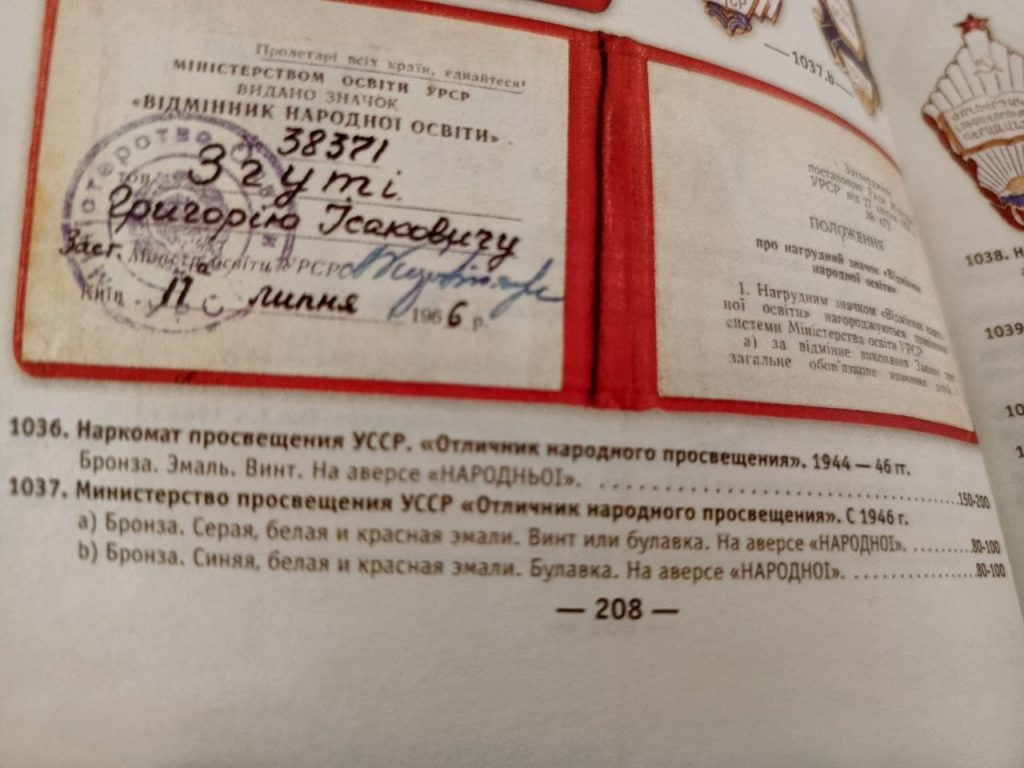 Пролетарі всіх країн, єднайтеся!
МІНІСТЕРСТВОМ ОСВІТИ УРСР
ВИДАНО ЗНАЧОК
«ВІДМІННИК НАРОДНОЇ ОСВІТИ».
38371
тов. Згуті
Григорію Ісаковичу
Заст. Міністр освіти УРСР
Київ. 11 липня 1966 р.
УРСР від 27
ПОЛОЖЕННЯ
про нагрудний значок «Відмінник
народної освіти»
1. Нагрудним значком «Відмінник
ної освіти» нагороджуються
системи Міністерства освіти УРСР
а) за відмінне виконання Закону про
загальне обов'язкове навчання
1037.
1038. Н
1039
10
1
1036. Наркомат просвещения УССР. «Отличник народного просвещения». 1944 — 46 гг.
Бронза. Эмаль. Винт. На аверсе «НАРОДНЬОІ». ........ 150-200
1037. Министерство просвещения УССР «Отличник народного просвещения». С 1946 г.
a) Бронза. Серая, белая и красная эмали. Винт или булавка. На аверсе «НАРОДНОІ». ........ 80-100
b) Бронза. Синяя, белая и красная эмали. Булавка. На аверсе «НАРОДНОІ». ........ 80-100
— 208 —